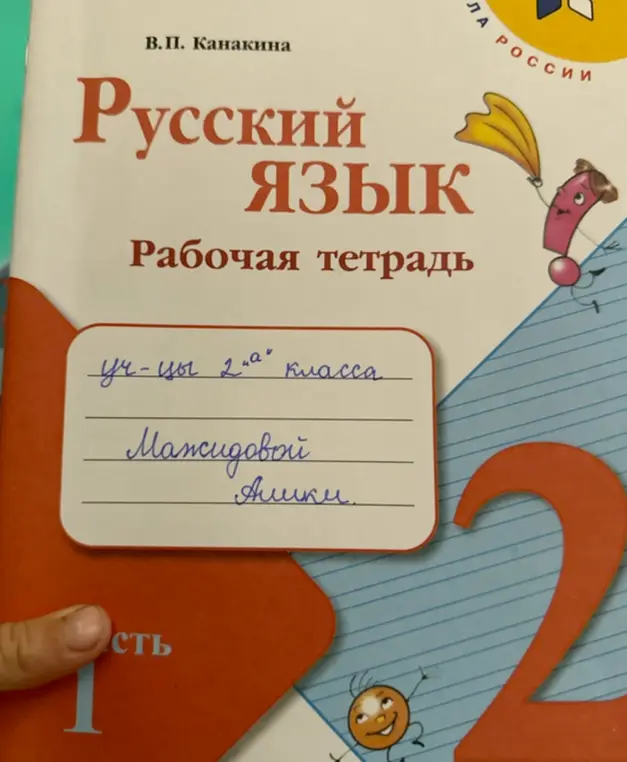 В.П. Канакина
ЛА РОССИИ
Русский
язык
Рабочая тетрадь
уч-цы 2 „а" класса
Мажидовой
Алики.
сть
1
2